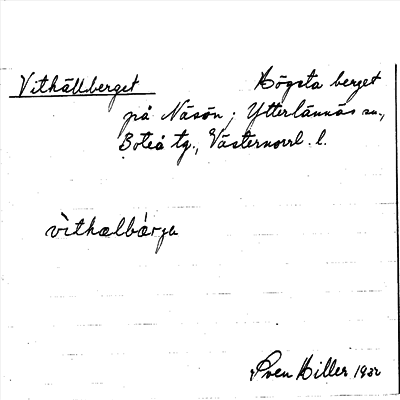 Vithällberget Högsta berget
på Näsön; Ytterlännäs sn.,
Boteå tg., Västernorrl. l.
vìthælbærja
Sven Hiller 1932